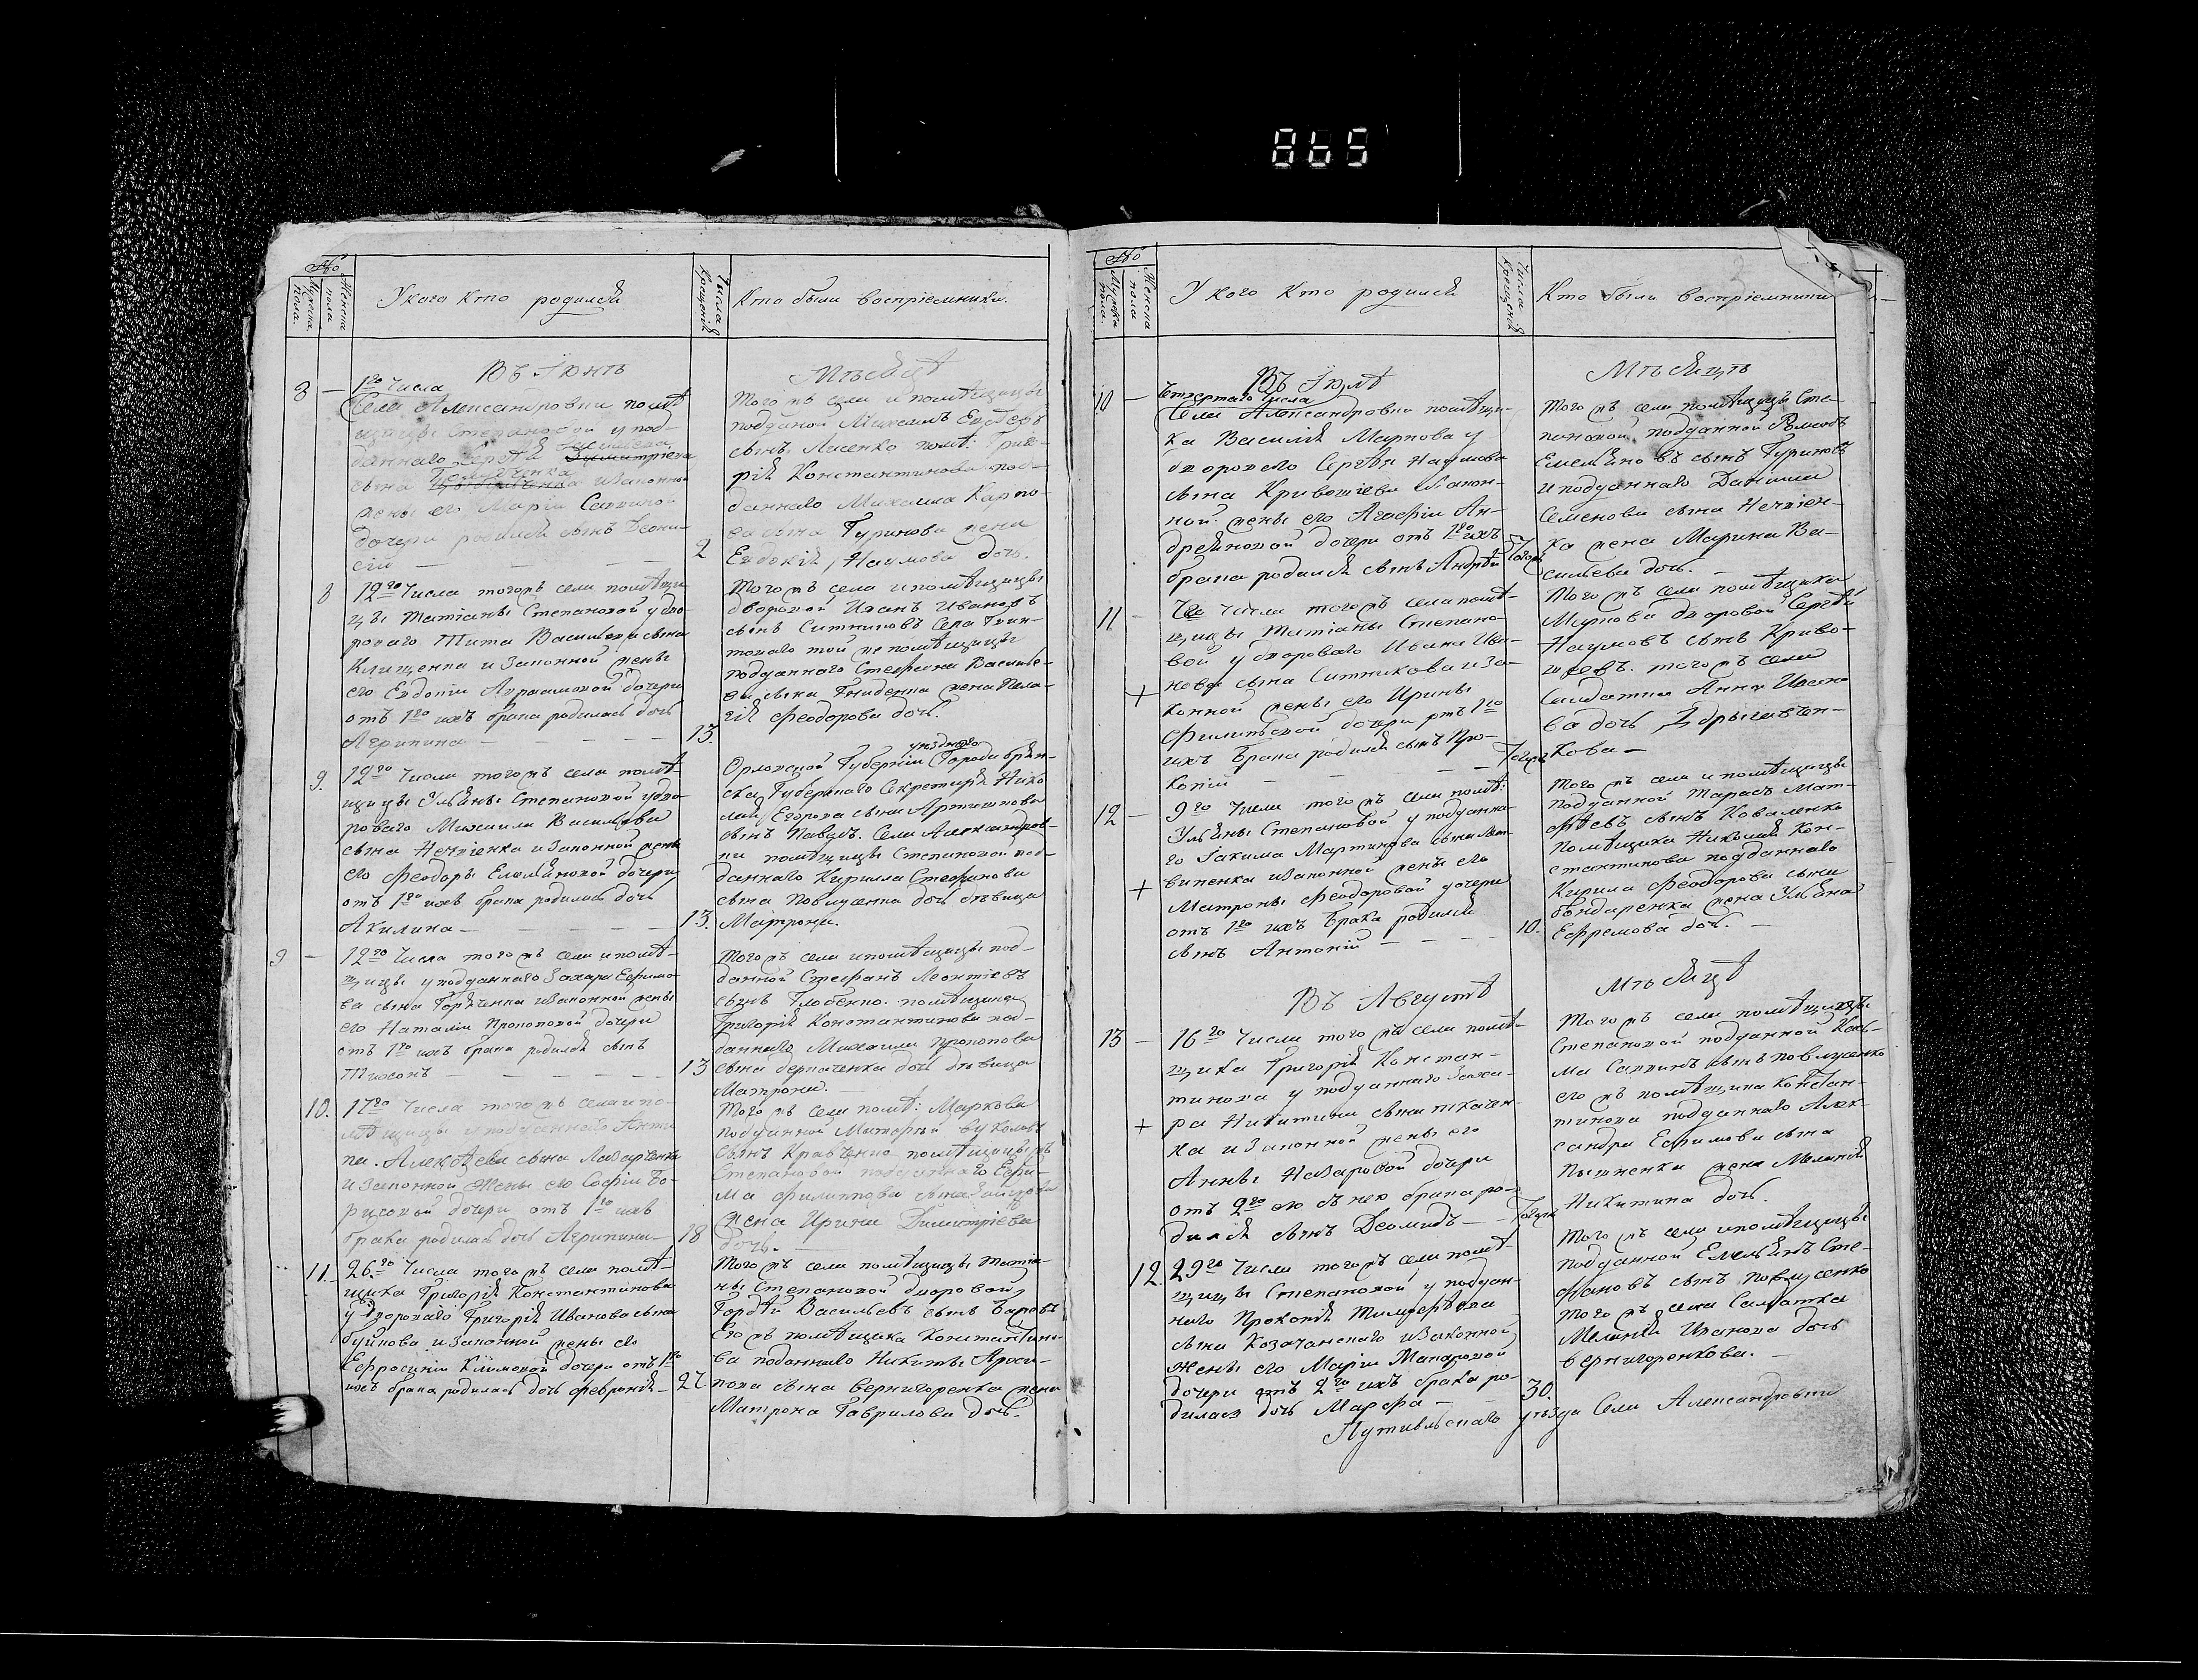 865
№
Мужеска пола.
Женска пола
У кого кто родился
Числа крещенія
Кто были воспріемники.
Въ Іюнѣ
Мѣсяцѣ
8 —
1го числа
Села Александровки помѣ
щицы Степановой у под-
даннаго
сына
жены его Маріи Саввиной
дочери родился сынъ Леони-
сій — — — —
2
Того жъ села и помѣщицы
подданой Михаилъ
сынъ Лисенко помѣ: Григо-
рія Константинова под-
даннаго Михаила Карпо-
ва сына Гуринова жена
Евдокія Наумова дочь.
8
12го Числа того жъ села помѣщи
цы Татіаны Степановой у дво
роваго Тита Васильева сына
Клищенка и Законной жены
его Евдокіи Авраамовой дочери
отъ 1го ихъ брака родилась дочь
Агрипина — — — —
13.
Того жъ села и помѣщицы
дворовой Иванъ Ивановъ
сынъ Ситниковъ Села
той же помѣщицы
подданнаго Стефана Василье-
ва сына Гниденка жена Пела-
гія Феодорова дочь.
9.
12го Числа того жъ села помѣ-
щицы Ульяны Степановой у дво-
роваго Михаила Васильева
сына Нечпіенка и Законной жены
его Феодоры Емельяновой дочери
отъ 1го ихъ брака родилась дочь
Акилина — — — —
13.
уѣзднаго
Орловской Губерніи Города Брян-
ска Губернаго Секретаря Нико
лая Егорова сына Артюшкова
сынъ Павелъ. Села Александров-
ки помѣщицы Степановой под-
даннаго Кирилла Стефанова
сына Павлусенка дочь дѣвица
Матрона.
9 —
12го Числа того жъ села и помѣ-
щицы у подданнаго Захара Ефимо-
ва сына Горяченка и Законной жены
его Наталіи Прокоповой дочери
отъ 1го ихъ брака родился сынъ
Тихонъ — — — —
13
Того жъ села и помѣщицы под-
данной Стефанъ Леонтіевъ
сынъ Глобенко. помѣщика
Григорія Константинова под-
даннаго Михаила Прокопова
сына Деркаченка дочь дѣвица
Матрона.
10.
17го Числа того жъ села и по-
мѣщицы у подданнаго Анти
па. Алексѣева сына Лазаренка
и Законной Жены его Софіи Бо-
рисовой дочери отъ 1го ихъ
брака родилась дочь Агрипина —
18
Того жъ села помѣ: Маркова
подданной Матфей Вуколовъ
сынъ Кравченко помѣщицы жъ
Степановой подданнаго Ефи-
ма Филиппова сына
жена Ирина Димитріева
дочь.
11.
26го Числа того жъ села помѣ-
щика Григорія Константинова
у Двороваго Григорія Иванова сына
Буйкова и Законной жены его
Ефросиніи Климовой дочери отъ 1го
ихъ брака родилась дочь Февронія —
27.
Того жъ села помѣщицы Татіа-
ны Степановой дворовой
Гордѣй Васильевъ сынъ
Его жъ помѣщика Константино-
ва поданнаго Никиты Архи-
пова сына Вернигоренка жена
Матрона Гаврилова дочь.
№
Мужеска пола.
Женска пола
У кого кто родился
Числа крещенія
Кто были воспріемники
Въ Іюлѣ
Мѣсяцѣ
10 —
Четвертаго числа
Села Александровки помѣщи-
ка Василія Маркова у
двороваго Сергѣя Наумова
сына Кривошіева и Закон-
ной жены его Агафіи Ан-
дреяновой дочери отъ 1го ихъ
брака родился сынъ Андрей
Того жъ села помѣщицы Сте-
пановой подданной Романъ
Емельяновъ сынъ Гуриновъ
и подданнаго Даниила
Семенова сына Нечпіен-
ка жена Марина Ва-
сильева дочь. —
11 —
+
7го числа того жъ села помѣ-
щицы Татіаны Степано-
вой у двороваго Ивана Ива-
нова сына Ситникова и За-
конной жены его Ирины
Филиповой дочери отъ 1го
ихъ Брака родился сынъ Про-
копій — — —
Того жъ села помѣщика
Маркова дворовой Сергѣй
Наумовъ сынъ Криво-
шеевъ. того жъ села
Салдатка Анна Ивано
ва дочь
кова —
12 —
+
9го Числа того жъ села помѣ:
Ульяны Степановой у поданна-
го Іакима Мартинова сына Лит-
виненка и Законной жены его
Матроны Феодоровой дочери
отъ 1го ихъ Брака родился
сынъ Антоній — — —
10.
Того жъ села и помѣщицы
подданной Тарасъ Мат-
фѣевъ сынъ Коваленко
помѣщика Николая Кон-
стантинова подданнаго
Кирила Феодорова сына
Бондаренка жена Ульяна
Ефремова дочь. —
Въ Августѣ
Мѣсяцѣ
13 —
+
16го Числа того жъ села помѣ-
щика Григорія Констан-
тинова у подданнаго Заха-
ра Никитина сына Ткачен-
ка и Законной жены его
Анны Назаровой дочери
отъ 2го его съ нею брака ро-
дился сынъ Деомидъ —
Того жъ села помѣщицы
Степановой подданной Коз-
ма Саввинъ сынъ Павлусенко
его жъ помѣщика Констан-
тинова подданнаго Алек-
сандра Ефимова сына
Пышненка жена Меланія
Никитина дочь.
12
29го Числа того жъ села помѣ-
щицы Степановой у поддан-
наго Прокопія Тимофѣева
сына Козачанскаго и Законной
жены его Маріи Макаровой
дочери отъ 2го ихъ брака ро-
дилась дочь Марфа — —
30.
Того жъ села и помѣщицы
подданной Емельянъ Сте-
фановъ сынъ Павлусенко
того жъ села Салдатка
Меланія Иванова дочь
Вернигоренкова. —
Путивльскаго уѣзда Села Александровки